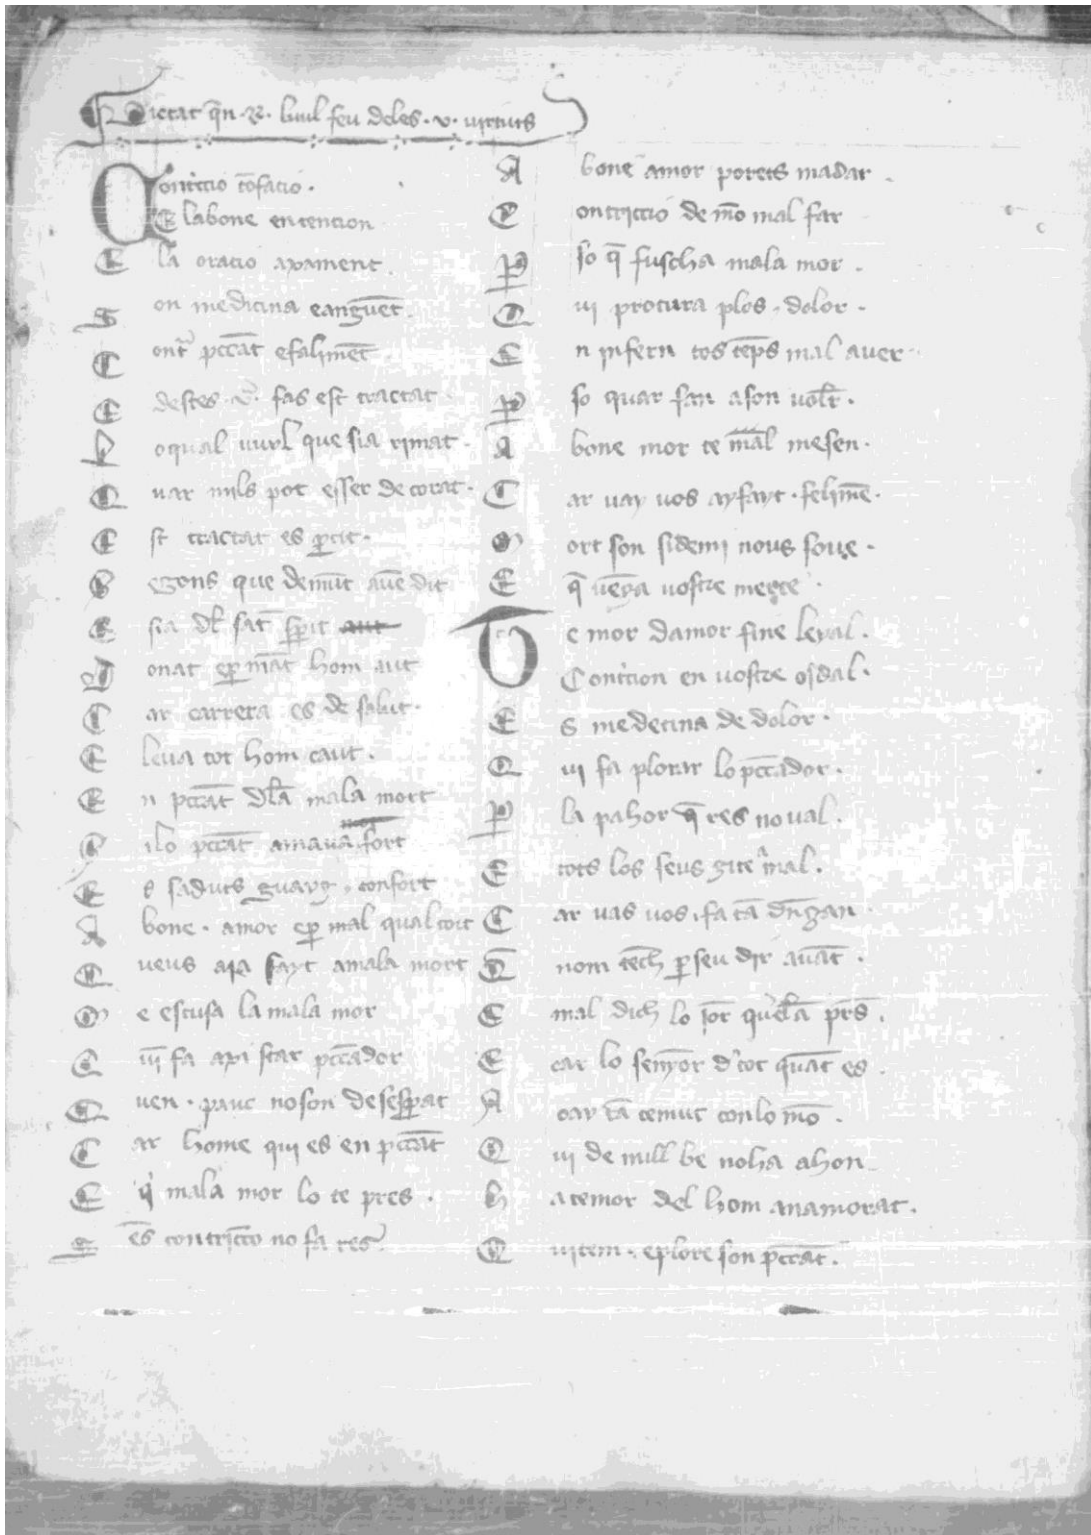 Dictat q̄n .R. luul feu deles .v. uirtuts
Contricio cōfacio.
E labone entencion
E la oracio axament
Son medicina eanguēt.
Contr̄ pccāt efalimēt
E destes .v. fas est tractat.
Loqual vurl que sia rimat.
Quar mils pot esser decorat.
Est tractat es ꝑtit.
Segons que demūt auē dit
E sia dl̄ sāt sp̄it
Donat eꝑ māt hom aut
Car carrera es de salut.
E leua tot hom caut.
En pccāt dl̄a mala mort
Cilo pccāt amaua fort
Es saduts guayg . confort
A bone . amor eꝑ mal qual tort
Queus aia fayt amala mort
Me escusa la mala mor
Q̄ui fa axi star pccador
Quen . pauc noson desesꝑat
Car home qui es en pccāt
E q̇ mala mor lo te pres .
Sēs contricco no fa res.
A bone amor porets madar .
Contriccio de mō mal far
Pso q̄ fuscha mala mor .
Qui procura plos . dolor .
En infern tos tēps mal auer.
Pso quar fan ason uolr̄ .
A bone mor te māl mesen.
Car uay uos ayfayt . felimē.
Mort son sidemi nous soue .
E q̄ uēya uostre merce .
Te mor damor fine leyal .
Contricion en uostre osdal .
Es medecina de dolor .
Qui fa plorar lo pccador .
P la pahor q̄ res no ual .
E tots los seus gite mal .
Car uas uos . ifa tā dn̄gan .
E nom tēch ꝑ seu dir auāt .
E mal dich lo ior quela prēs .
E car lo senyor d' tot quāt es .
A oay tā temut con lo mō .
Qui de mill be noha ahon
Ha temor del hom anamorat .
Quitem . eplore son pccāt .